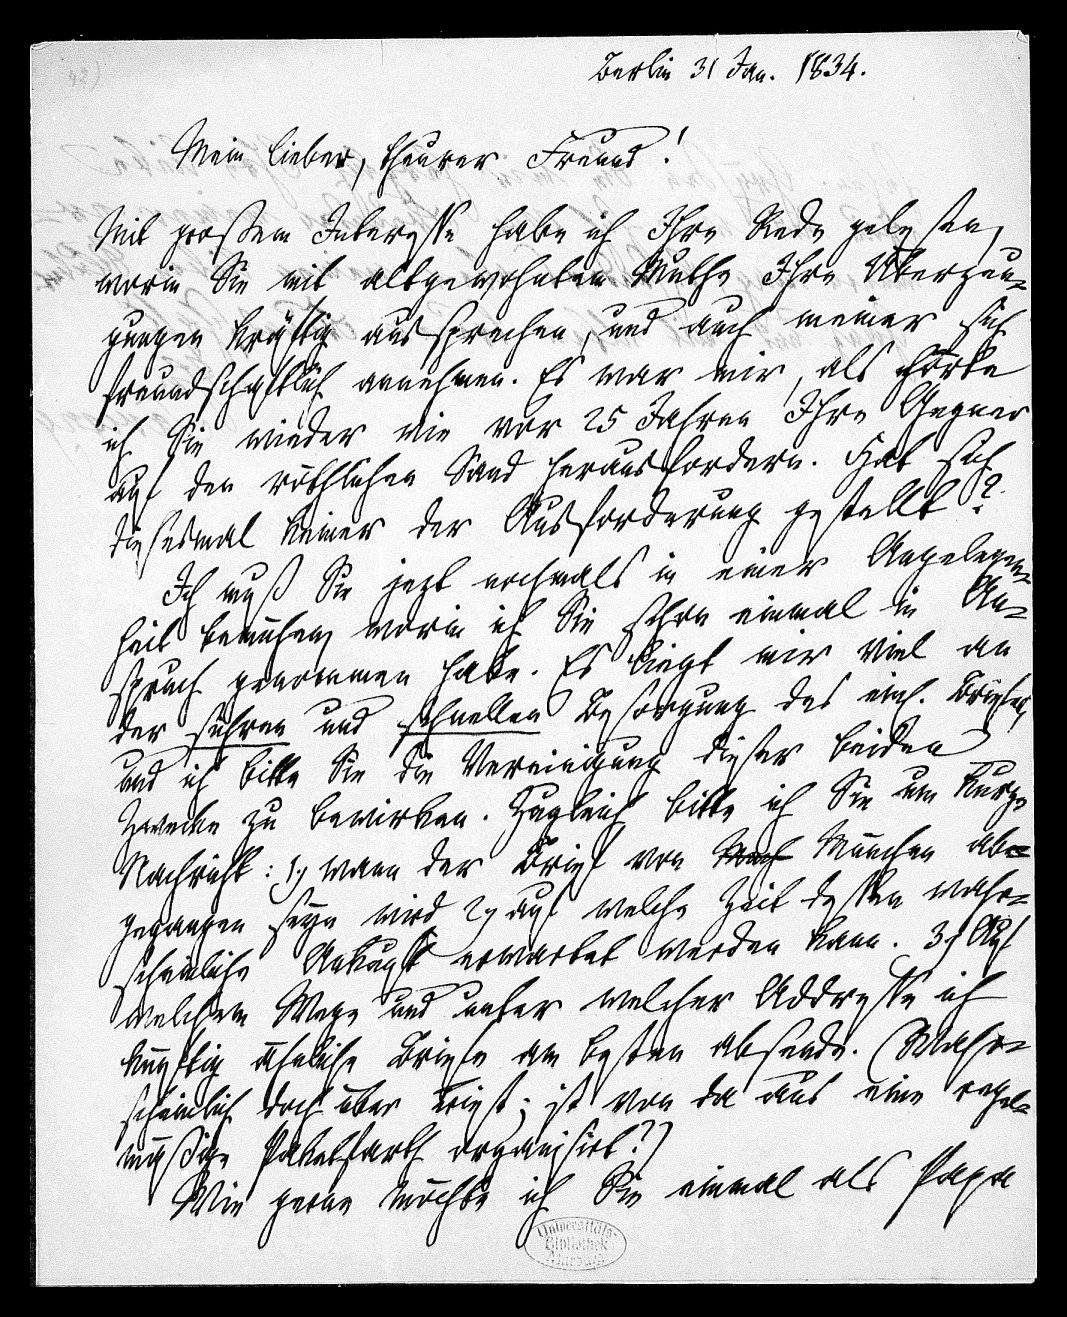 Berlin 31 Jan. 1834.
Mein lieber, theurer Freund!
Mit großem Interesse habe ich Ihre Rede gelesen,
worin Sie mit altgewohntem Muthe Ihre Überzeu-
gungen kräftig aussprechen und auch meiner sich
freundschaftlich annehmen. Es war mir, als hörte
ich Sie wieder wie vor 25 Jahren Ihre Gegner
auf den röthlichen Sand herausfordern. Hat sich
diesesmal keiner der Ausforderung gestellt?
Ich muß Sie jezt nochmals in einer Angelegen-
heit bemühen, worin ich Sie schon einmal in An-
spruch genommen habe. Es liegt mir viel an
der sichren und schnellen Besorgung des einl. Briefes,
und ich bitte Sie die Vereinigung dieser beiden
Zwecke zu bewirken. Zugleich bitte ich Sie um kurze
Nachricht: 1) wann der Brief von München abge-
gegangen seyn wird 2) auf welche Zeit dessen wahr-
scheinliche Ankunft erwartet werden kann. 3) Auf
welchem Wege und unter welcher Addresse ich
künftig ähnliche Briefe am besten absende. (Wahr-
scheinlich doch über Triest; ist von da aus eine regel-
mäßige Paketfarth organisirt?)
Wie gerne möchte ich Sie einmal als Papa
Universitäts-
Bibliothek
Marburg